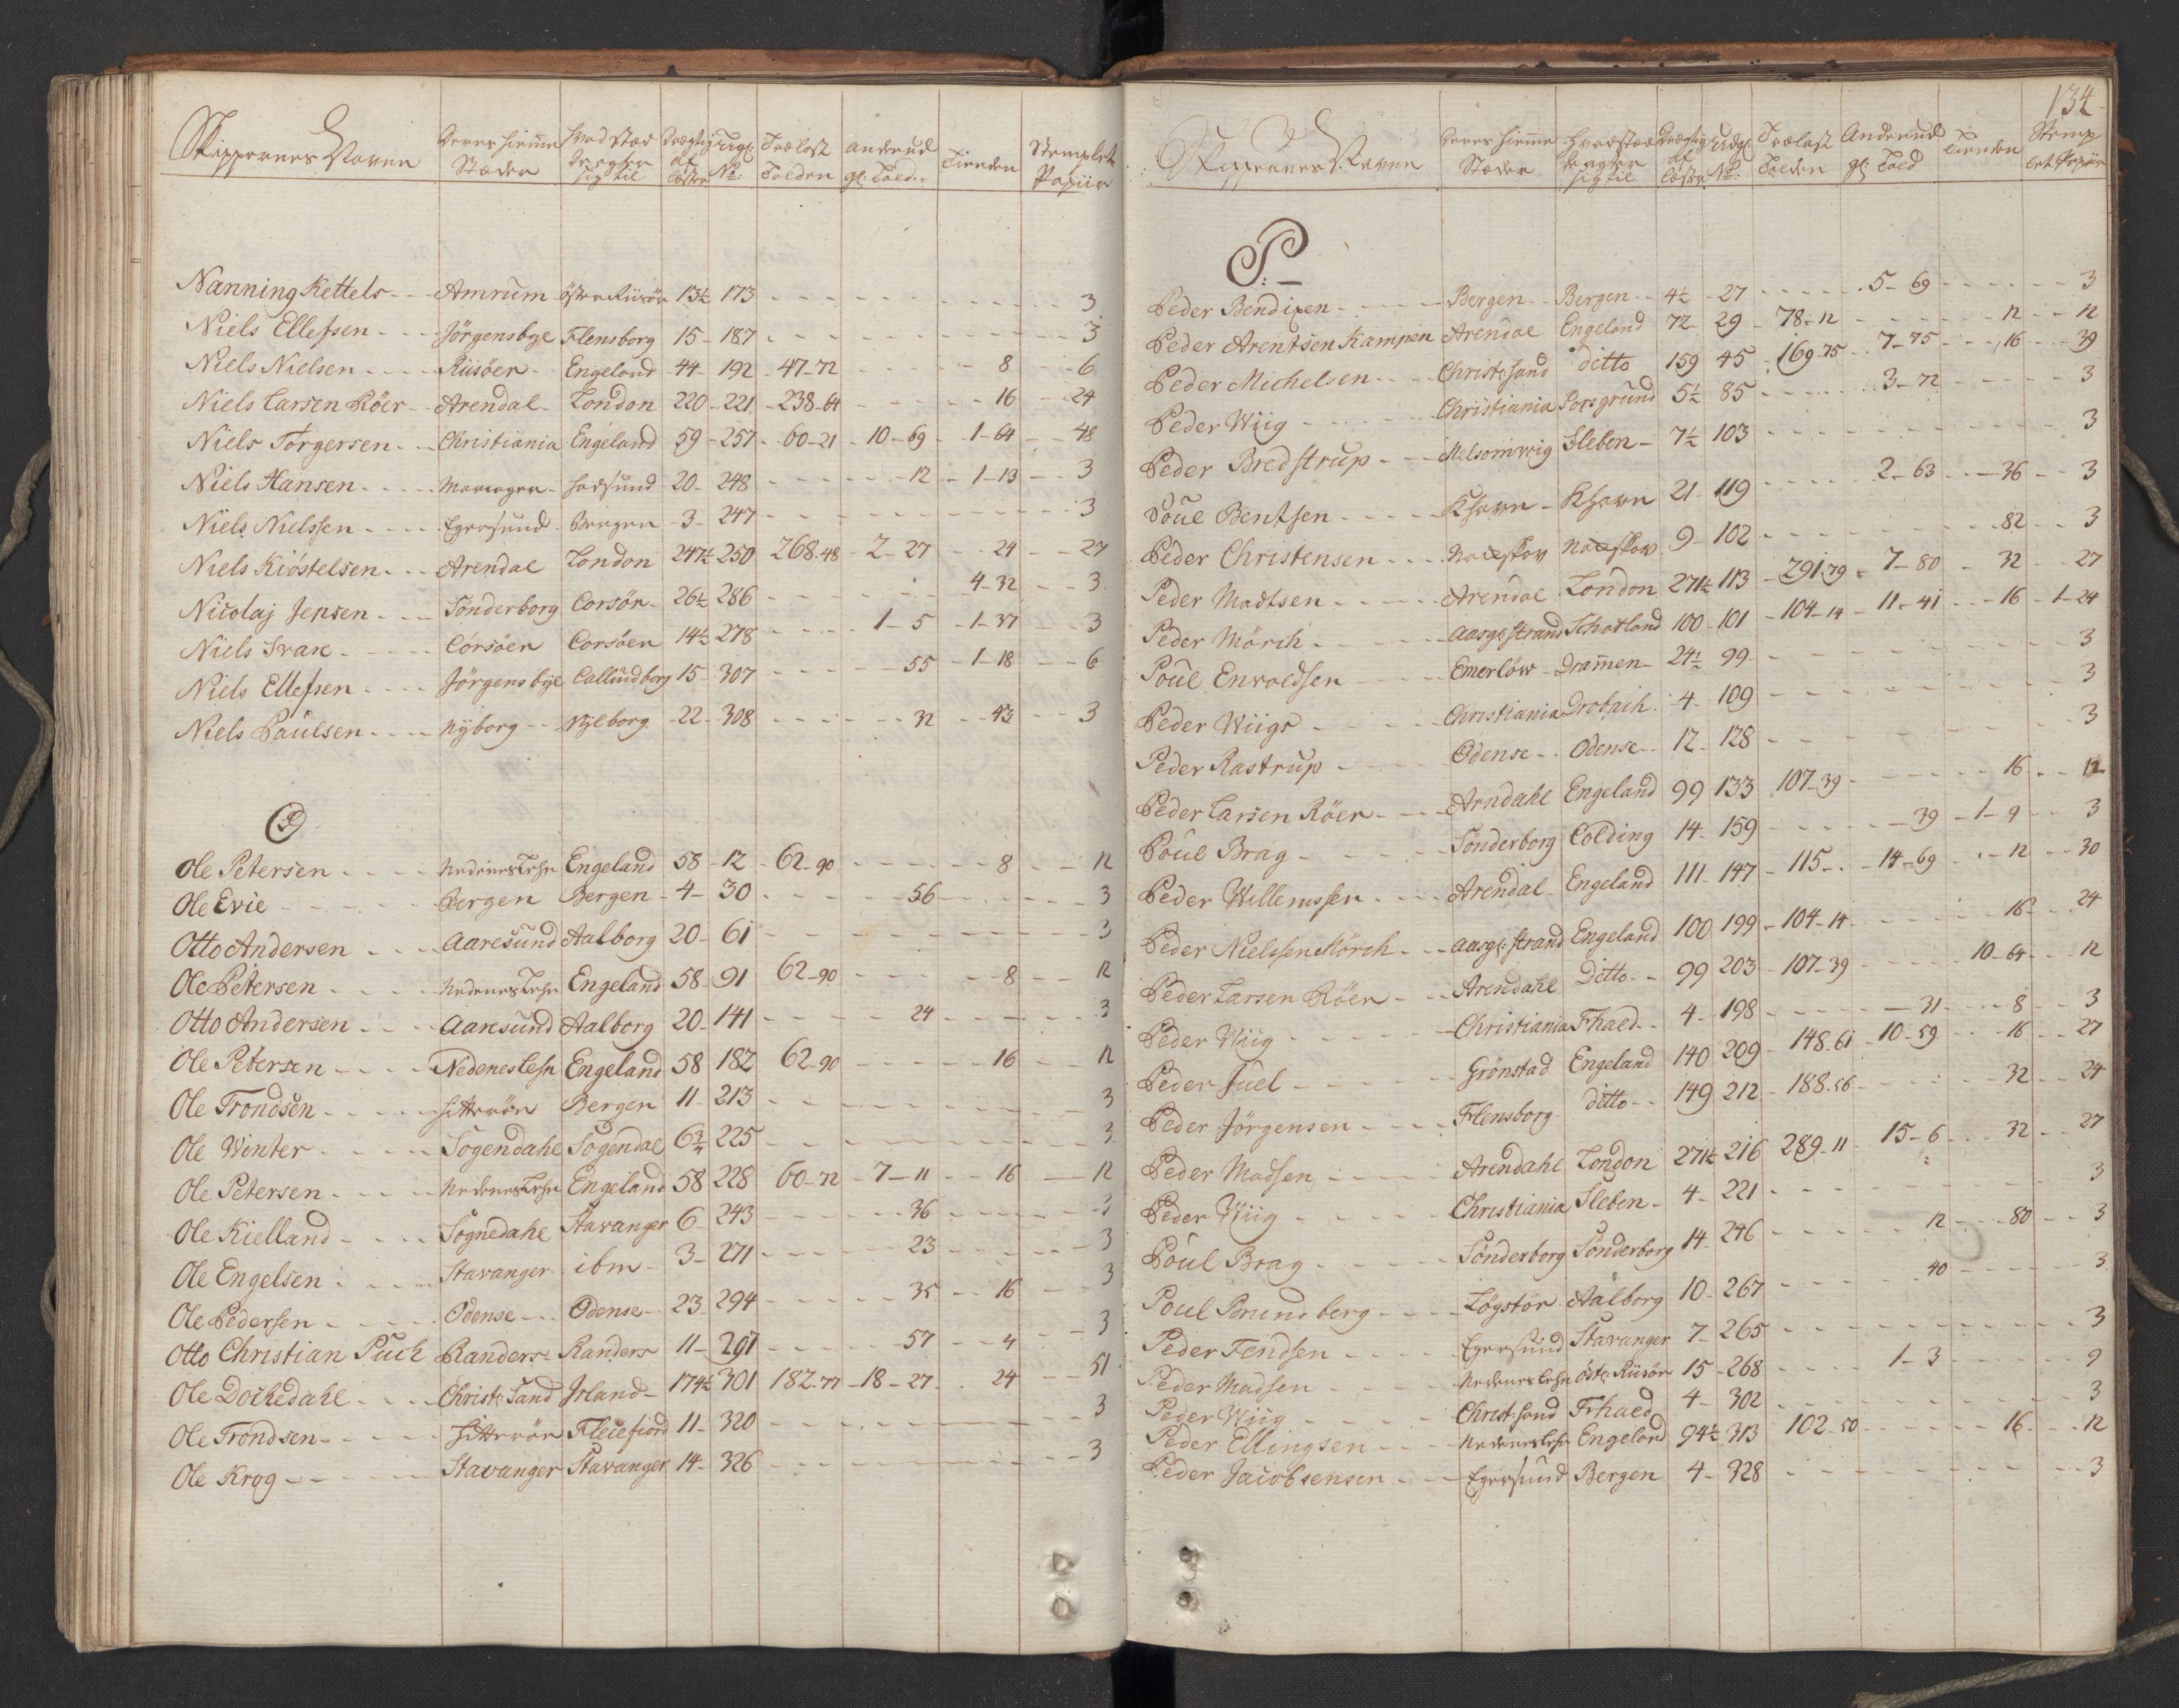 Skippernes Navne | Deres Hiemme Stæder | Hvad Stæd de agter sig til | Drægtig af Læster | Udg. No: | Trælast Tolden | Anden ud gl: Told | Tienden | Stemplet Papiir
Nanning Kettels Amrum Öster Riisöer 13½ 173 3
Niels Ellefsen Jörgensbye Flensborg 15 187 3
Niels Nielsen Riisöer Engeland 44 192 47-72 8 6
Niels Larsen Röer Arendal London 220 221 238-64 16 24
Niels Torgersen Christiania Engeland 59 257 60-21 10-69 1-64 48
Niels Hansen Mariager Hadsund 20 248 12 1-13 3
Niels Nielssen Egersund Bergen 3 247 3
Niels Kiöstelsen Arendal London 247½ 250 268-48 2-27 24 27
Nicolaj Jepsen Sönderborg Corsör 26½ 286 4-32 3
Niels Svan Corsöer Corsöer 14½ 278 1-5 1-37 3
Niels Ellefsen Jörgensbye Callundborg 15 307 55 1-18 6
Niels Paulsen Nyborg Nyeborg 22 308 32 43 3
O
Ole Petersen Nedenes Lehn Engeland 58 12 62-90 8 12
Ole Evie Bergen Bergen 4 30 56 3
Otto Andersen Aaresund Aalborg 20 61 3
Ole Petersen Nedenes Lehn Engeland 58 91 62-90 8 12
Otto Andersen Aaresund Aalborg 20 141 24 3
Ole Petersen Nedenes Lehn Engeland 58 182 62-90 16 12
Ole Trondsen Hitteröe Bergen 11 213 3
Ole Winter Sogendahl Sogendal 6¾ 225 3
Ole Petersen Nedenes Lehn Engeland 58 228 60-72 7-11 16 12
Ole Kielland Sognedahl Stavanger 6 243 36 3
Ole Engelsen Stavanger ibm 3 271 23 3
Ole Pedersen Odense Odense 23 294 35 16 3
Otto Christian Puck Randers Randers 11 291 57 4 3
Ole Dockedahl Christ: Sand Irland 174½ 301 182-77 18-27 24 51
Ole Trondsen Hitteröe Fleckefiord 11 320 3
Ole Krog Stavanger Stavanger 14 326 3
134
Skippernes Navne | Deres Hiemme Stæder | Hvad Stæd de agter sig til | Drægtig af Læster | Udg. No: | Trælast Tolden | Anden ud gl: Told | Tienden | Stemplet Papiir
P.
Peder Bendixen Bergen Bergen 4½ 27 5-69 3
Peder Arentsen Kampen Arendal Engeland 72 29 78-12 12 12
Peder Michelsen Christ: sand ditto 159 45 169-75 7-75 16 39
Peder Wiig Christiania Porsgrund 5½ 85 3-72 3
Peder Bredstrup Melsomwiig Sleben 7½ 103 3
Poul Bentsen Khavn Khavn 21 119 2-63 36 3
Peder Christensen Nachskov Nachskov 9 102 82 3
Peder Madtsen Arendal London 271½ 113 291-79 7-80 32 27
Peder Mörch Aasgs:strand Schotland 100 101 104-14 11-41 16 1-24
Poul Envoldsen Emerlöw Drammen 24½ 99 3
Peder Wiigs Christiania Drobach 4 109 3
Peder Rastrup Odense Odense 12 128 3
Peder Larsen Röer Arndahl Engeland 99 133 107-39 16 12
Poul Brag Sönderborg Colding 14 159 39 1-9 3
Peder Willemssen Arendal Engeland 111 147 115 14-69 12 30
Peder Nielssen Mörch Aasgs:strand Engeland 100 199 104-14 16 24
Peder Larsen Röer Arendahl Ditto 99 203 107-39 10-64 12
Peder Wiig Christiania Frhald 4 198 31 8 3
Peder Juel Grönstad Engeland 140 209 148-61 10-59 16 27
Peder Jörgensen Flensborg ditto 149 212 188-56 32 24
Peder Madsen Arendahl London 271½ 216 289-11 15-6 32 27
Peder Wiig Christiania Sleben 4 221 3
Poul Brag Sönderborg Sönderborg 14 246 12 80 3
Poul Brundberg Lögstör Aalborg 10 267 40 3
Peder Fendsen Egersund Stavanger 7 265 3
Peder Madsen Nedenes Lehn öst: Riisör 15 268 1-3 9
Peder Wiig Christ: sand Frhald 4 302 3
Peder Ellingsen Nedenes Lehn Engeland 94½ 313 102-50 16 12
Peder Jacobsensen Egersund Bergen 4 328 3